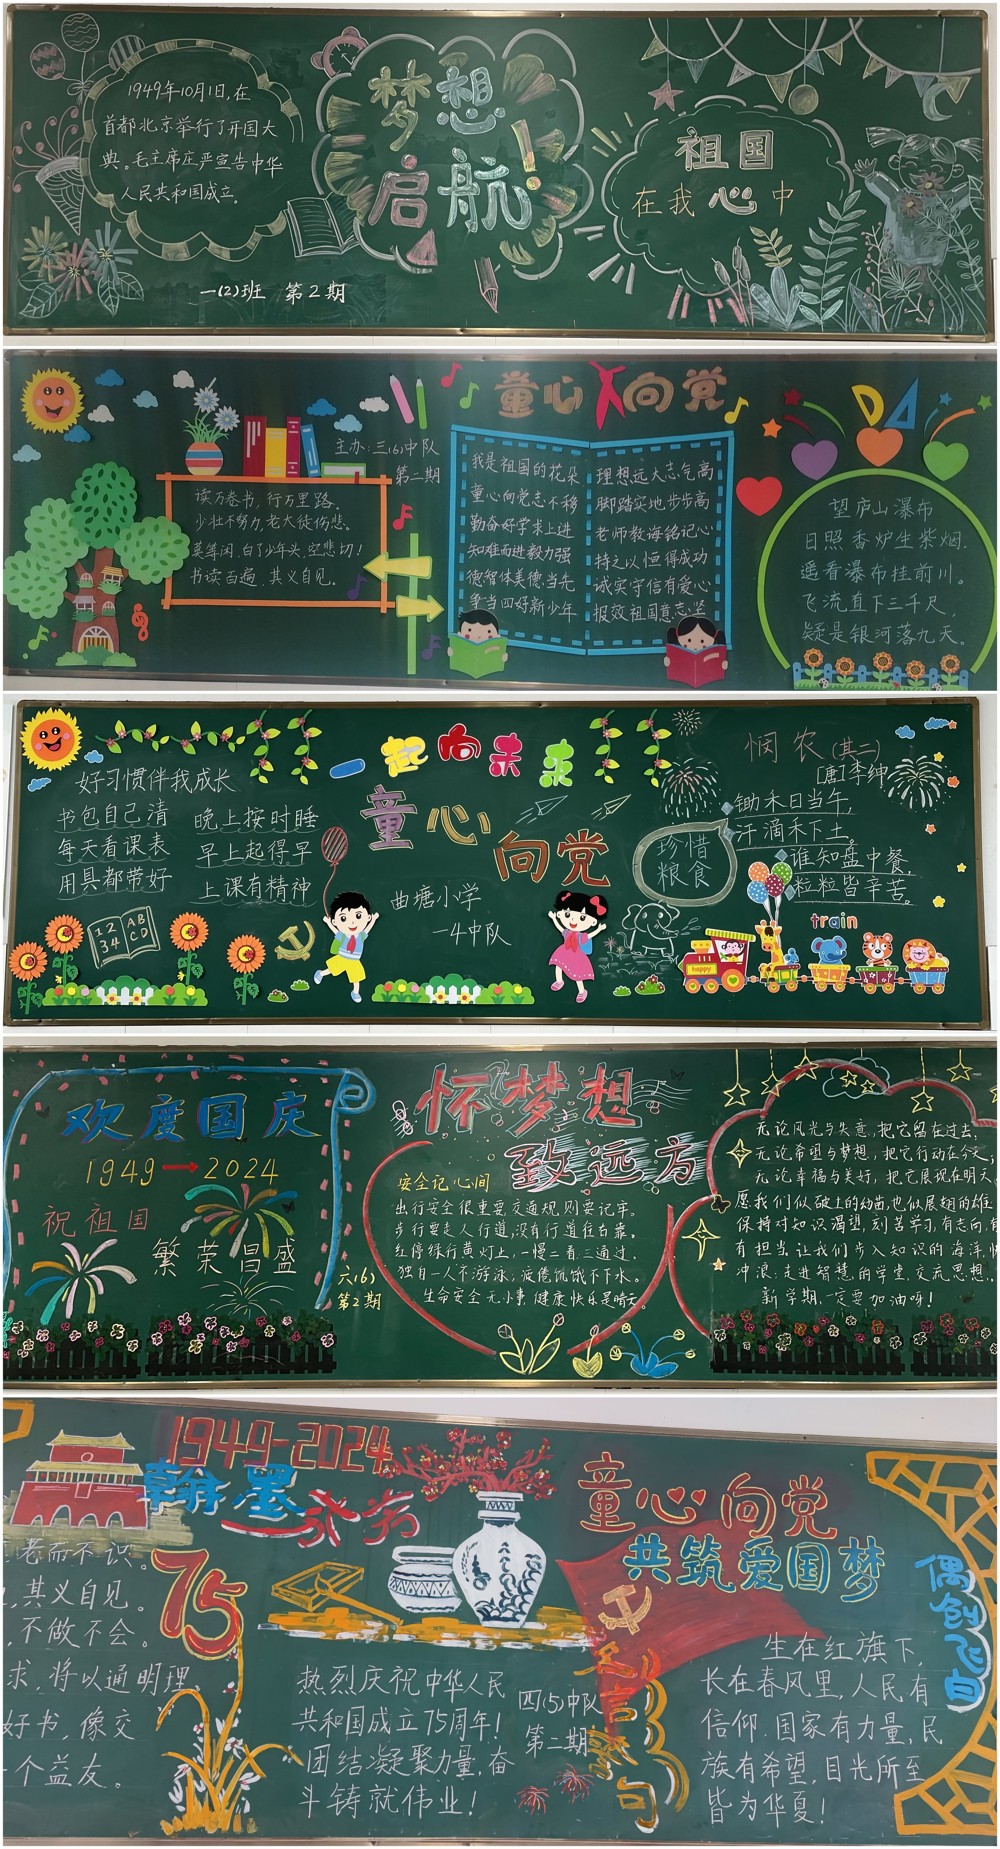 1949年10月1日,在
首都北京举行了开国大
典。毛主席庄严宣告中华
人民共和国成立。
梦想
启航!
祖国
在我心中
一(2)班 第2期
童心向党
主办:三(6)中队
第二期
读万卷书,行万里路。
少壮不努力,老大徒伤悲。
莫等闲,白了少年头,空悲切!
书读百遍,其义自见。
我是祖国的花朵
童心向党志不移
勤奋好学求上进
知难而进毅力强
德智体美德当先
争当四好新少年
理想远大志气高
脚踏实地步步高
老师教诲铭记心
持之以恒得成功
诚实守信有爱心
报效祖国意志坚
望庐山瀑布
日照香炉生紫烟.
遥看瀑布挂前川。
飞流直下三千尺,
疑是银河落九天。
一起向未来
童心
向党
好习惯伴我成长
书包自己清
每天看课表
用具都带好
晚上按时睡
早上起得早
上课有精神
12
34
AB
CD
曲塘小学
一4中队
珍惜
粮食
悯农(其二)
[唐]李绅
锄禾日当午,
汗滴禾下土。
谁知盘中餐,
粒粒皆辛苦。
train
happy
欢度国庆
1949→2024
祝祖国
繁荣昌盛
六(6)
第2期
怀梦想
致远方
安全记心间
出行安全很重要,交通规则要记牢。
步行要走人行道,没有行道往右靠。
红停绿行黄灯上,一慢二看三通过。
独自一人不游泳,疲倦饥饿不下水。
生命安全无小事,健康快乐是晴天。
无论风光与失意,把它留在过去,
无论希望与梦想,把它行动在今天,
无论幸福与美好,把它展现在明天
愿我们似破土的幼苗,也似展翅的雄
保持对知识渴望,刻苦学习,有志向,有
有担当,让我们步入知识的海洋,
冲浪;走进智慧的学堂,交流思想。
新学期,一定要加油呀!
1949-2024
翰墨
75
老而不识。
,其义自见。
,不做不会。
求,将以通明理。
好书,像交
个益友。
热烈庆祝中华人民
共和国成立75周年!
团结凝聚力量,奋
斗铸就伟业!
四(5)中队
第二期
童心向党
共筑爱国梦
生在红旗下,
长在春风里,人民有
信仰.国家有力量,民
族有希望,目光所至
皆为华夏!